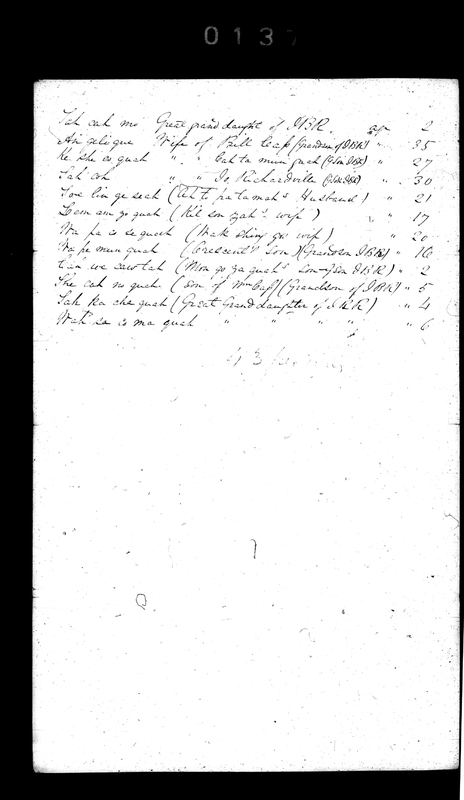 0137
Tah cah mo Great grand daught of J B R. age 2
An geli que Wife of Bill Cass (Grandson of J B R) " 35
Ke she co quah " " Cah ta mun guah (G Son JBR) " 27
Sah coh " " Jo Richardville (G Son JBR) " 30
lin ge seah (Ah to pa la mah's Husband) " 21
zo quah (Kil son zah's wife) " 17
Wa pa co se quah (Wife) " 20
Wa pe mun guah (Crescent's Son) (Grandson JBR) " 16
Can we saw lah (Mon go za quah's son G Son JBR) " 2
She cah co quah (Son of Wm Cass) (Grandson of JBR) " 5
Tah Ka che quah (Great Grand daughter of JBR) " 4
Wah se co ma quah " " " " " 6
43